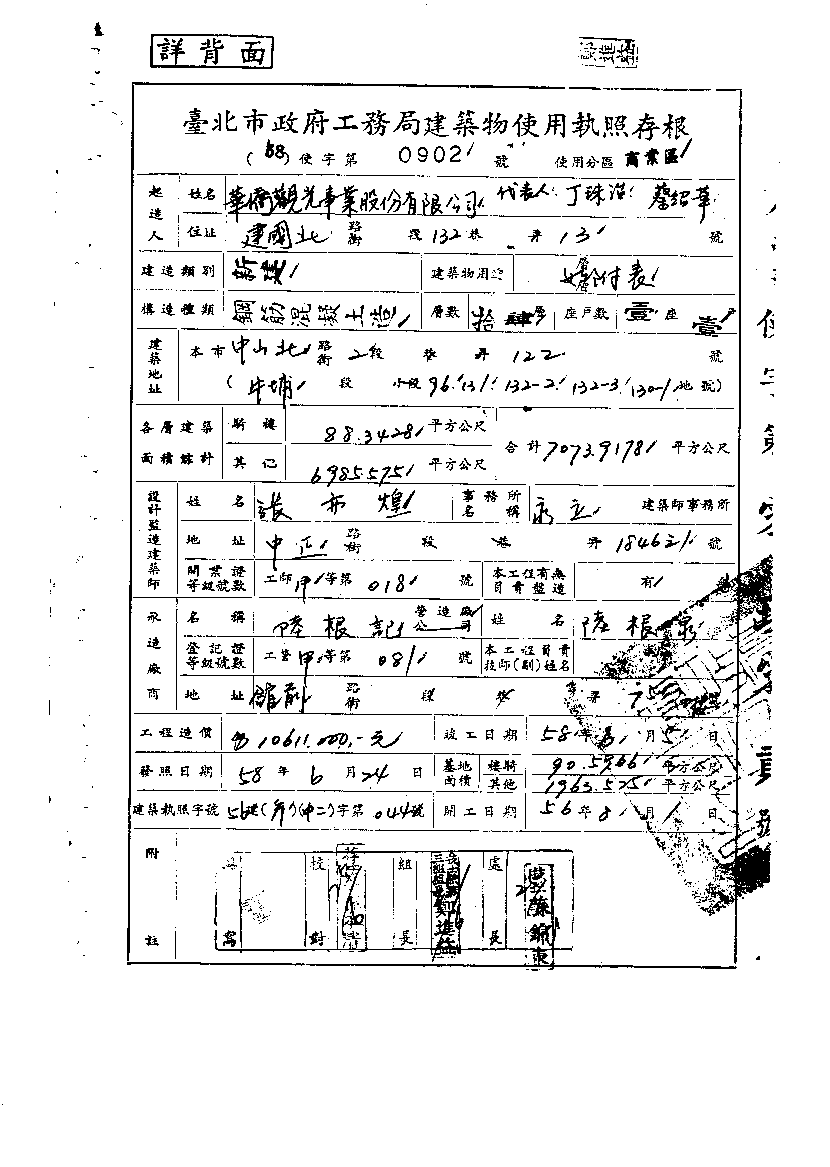 詳背面
臺北市政府工務局建築物使用執照存根
(58)使字第 0902 號 使用分區 商業區
起造人 姓名 華僑觀光事業股份有限公司 代表人:丁珠 蔡紹華
住址 建國北 路街 段 132 巷 弄 13 號
建造類別 新建 建築物用途 附表
構造種類 鋼筋混凝土造 層數 拾肆層 座戶數 壹座 壹戶
建築地址 本市 中山北 路街 2 段 巷 弄 122 號
(牛埔 段 小段 96. 131. 132-2. 132-3. 130-1 地號)
各層建築面積總計 騎樓 88.3428 平方公尺 合計 7073.9178 平方公尺
其他 6985.575 平方公尺
設計監造建築師 姓名 張 煌 事務所名稱 永立 建築師事務所
地址 中正 路街 段 巷 弄 1846 號
開業證等級號數 工師 甲 等第 018 號 本工程有無負責監造 有
承造廠商 名稱 陸根記 營造廠公司 姓名 陸根泉
登記證等級號數 工營 甲 等第 081 號 本工程負責技師(副)姓名
地址 館前 路街 段 巷 弄 75 號
工程造價 10611,000.-元 竣工日期 58 年 月 5 日
發照日期 58 年 6 月 24 日 基地面積 樓騎 90.5966 平方公尺
其他 1963.575 平方公尺
建築執照字號 56建( )(中二)字第 044 號 開工日期 56 年 8 月 1 日
附註 寫 校對 組長 處長